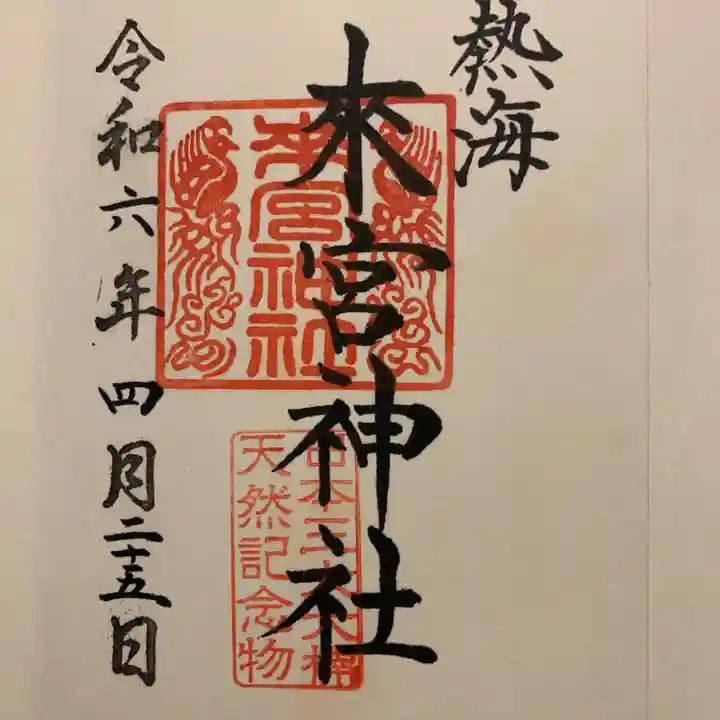 熱海
來宮神社
令和六年四月二十五日
來宮神社
日本三大大楠
天然記念物